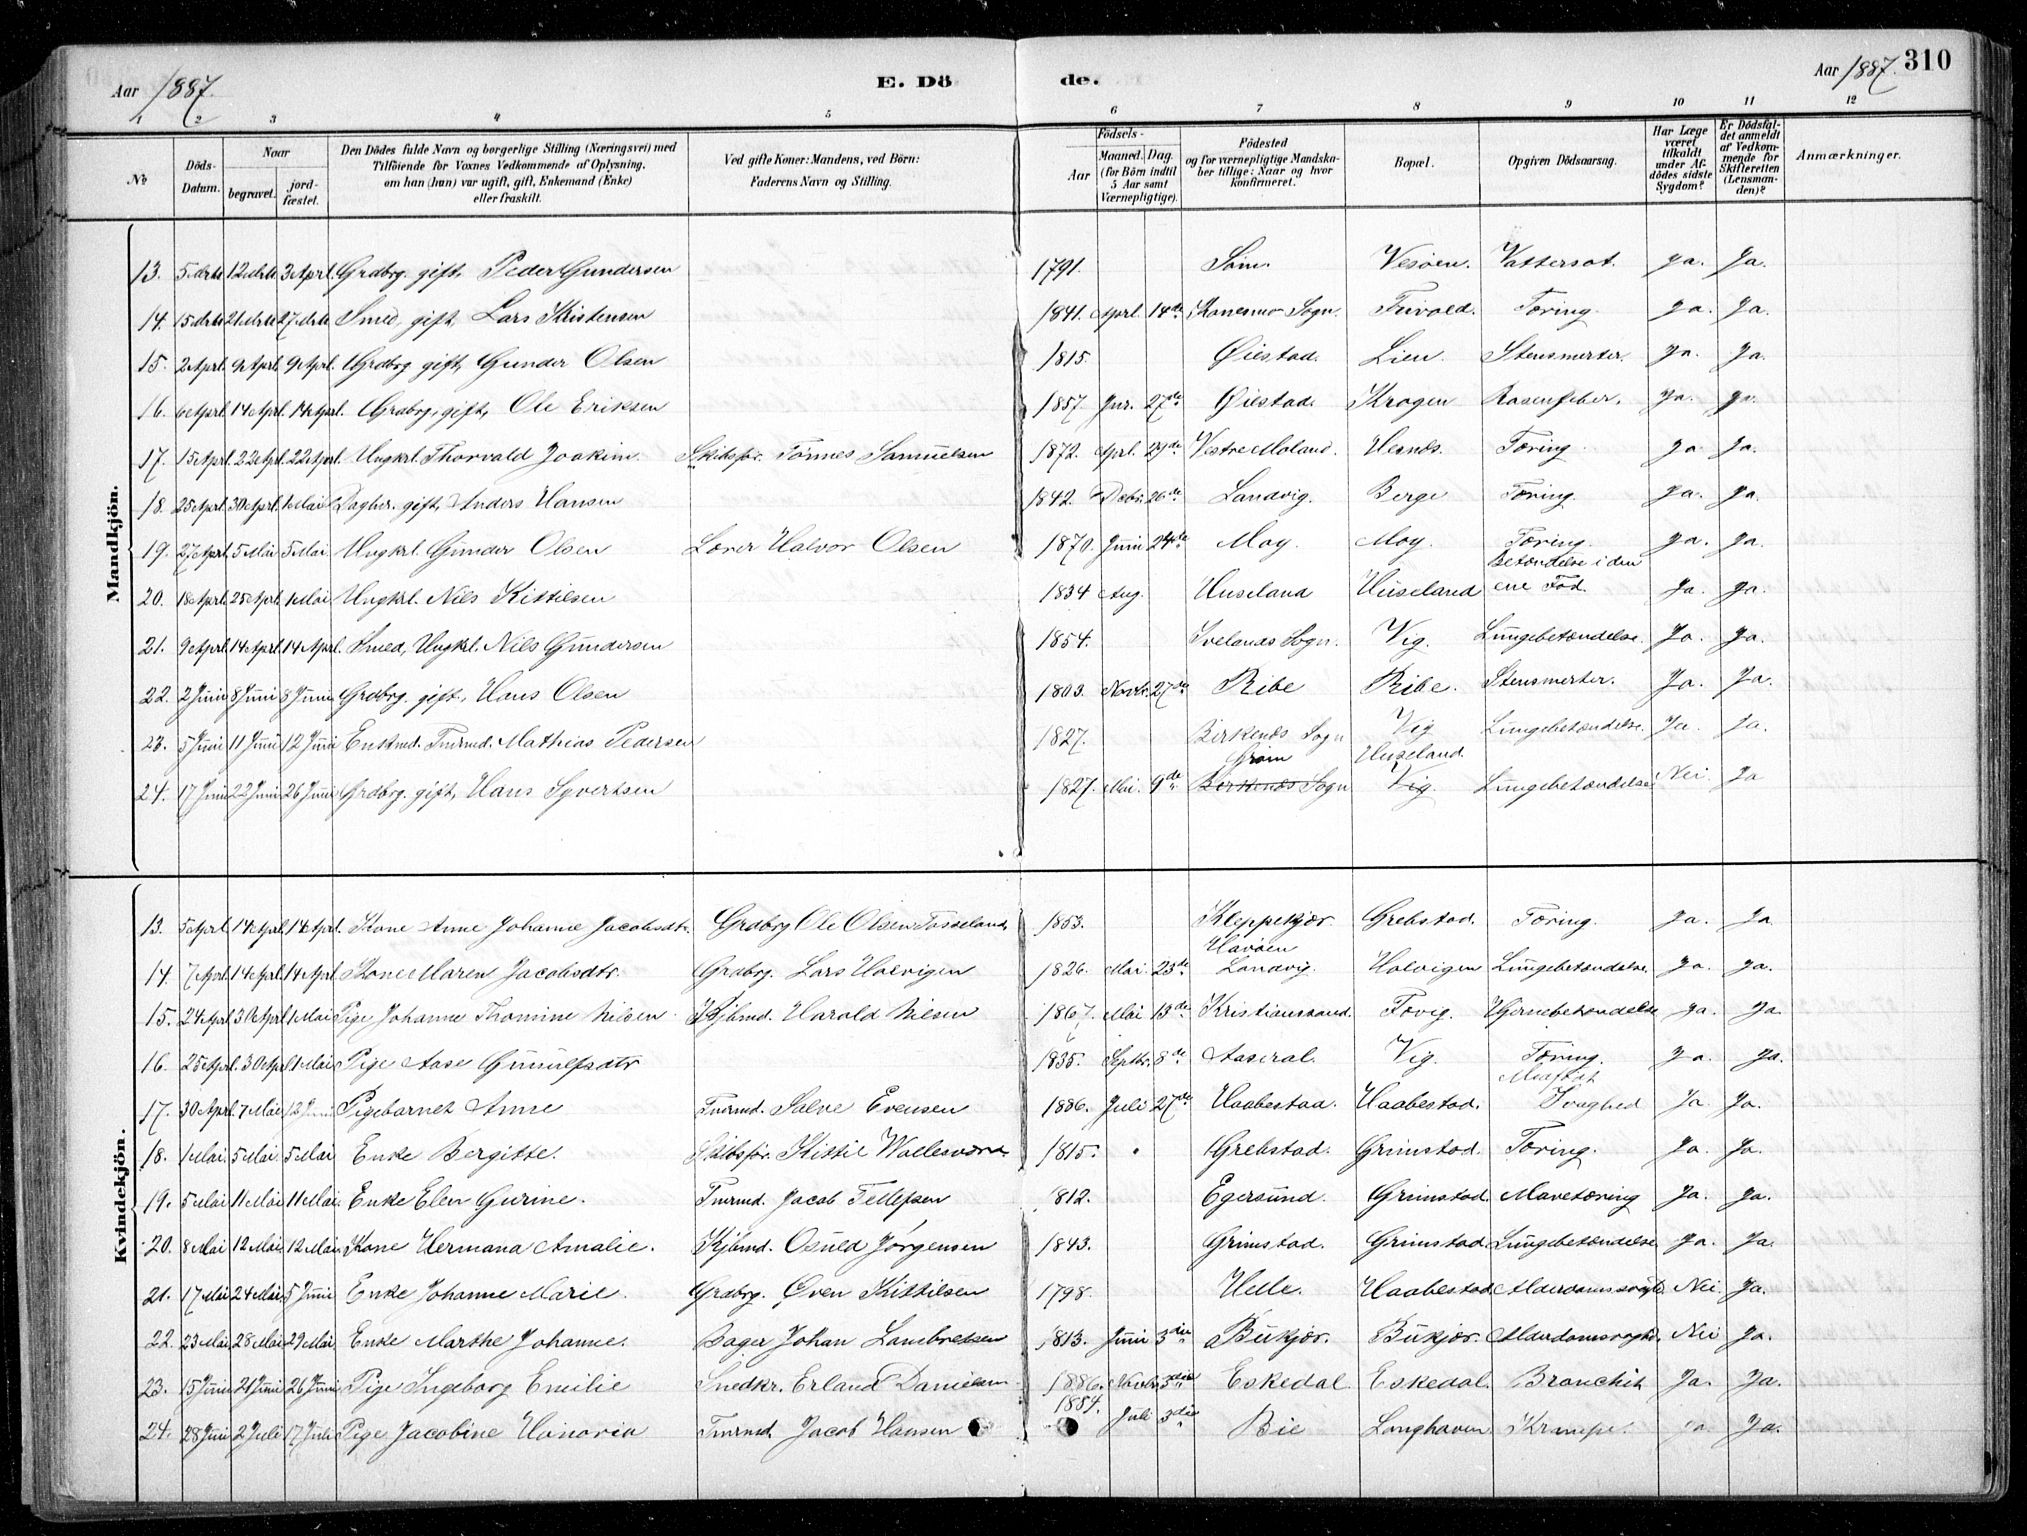 Aar 1887. E. Döde. Aar 1887. 310
1 2 3 4 5 6 7 8 9 10 11 12
No Döds-Datum. Naar begravet. jordfæstet. Den Dödes fulde Navn og borgerlige Stilling (Næringsvei) med Tilföiende for Voxnes Vedkommende af Oplysning. om han (hun) var ugift, gift, Enkemand (Enke) eller fraskilt. Ved gifte Koner: Mandens, ved Börn: Faderens Navn og Stilling. Födsels- Aar Maaned. Dag. (for Börn indtil 5 Aar samt Værnepligtige). Födested og for værnepligtige Mandskaber tillige: Naar og hvor konfirmeret. Bopæl. Opgiven Dödsaarsag. Har Læge været tilkaldt under Afdödes sidste Sygdom? Er Dödsfaldet anmeldt af Vedkommende for Skifteretten (Lensmanden)? Anmærkninger.
Mandkjön.
13. 5 Mrts 12 Mrts 3 Aprl. Grdbrg. gift, Peder Gundersen 1791. Søm. Vesøen. Vattersot. ja. Ja.
14. 15 Mrts 21 Mrts 27 Mrts Smed, gift, Lars Kristensen 1841. Aprl. 14de Konesmo Sogn. Frivold. Tæring. ja. Ja.
15. 2 Aprl. 9 Aprl. 9 Aprl. Grdbrg. gift, Gunder Olsen 1815. Øiestad. Lien. Stensmerter. ja. Ja.
16. 6 Aprl. 14 Aprl. 14 Aprl. Grdbrg, gift, Ole Eriksen 1857. Jnr. 27de Øiestad. Krogen Rosenfeber. ja. ja.
17. 15 Aprl. 22 Aprl. 22 Aprl. Ungkrl. Thorvald Joakim. Skibsfør. Tønnes Samuelsen 1872. Aprl. 29de Vestre Moland. Hesnæs. Tæring. ja. Ja.
18. 25 Aprl. 30 Aprl. 1 Mai Dagbr. gift, Anders Hansen 1842. Debr. 26de Landvig. Berge Tæring. ja. ja.
19. 27 Aprl. 5 Mai 5 Mai. Ungkrl. Gunder Olsen Lærer Halvor Olsen 1870. Juni 24de Moy. Moy. Tæring. ja. ja.
20. 18 Aprl. 25 Aprl. 1 Mai Ungkrl. Nils Kittilsen 1834 Aug. Huseland Huseland Betændelse i den ene Fod. Ja. ja.
21. 9 Aprl. 14 Aprl. 14 Aprl. Smed, Ungkrl. Nils Gundersen 1854. Ivelands Sogn. Vig. Lungebetændelse. Ja. ja.
22. 2 Juni 8 Juni 8 Juni Grdbrg. gift, Hans Olsen 1803. Novbr. 27de Ribe Ribe. Stensmerter. Ja. Ja.
23. 5 Juni 11 Juni 12 Juni Enkmd. Tmrmd. Mathias Pedersen 1827. Birkenæs Sogn Vig Lungebetændelse. Ja. Ja.
24. 17 Juni 22 Juni 26 Juni Grdbrg. gift, Hans Syvertsen 1827. Mai. 9de Grøm Birkenæs Sogn Huseland. Vig. Lungebetændelse. Nei. Ja
Kvindekjön.
13. 5 Aprl. 14 Aprl. 14 Aprl. Kone Anne Johanne Jacobsdtr. Grdbrg Ole Olsen Tosseland 1853. Kleppekjær. Grebstad. Tæring. ja. Ja
14. 7 Aprl. 14 Aprl. 14 Aprl Kone Maren Jacobsdtr. Grdbrg. Lars Holvigen 1826. Mai. 23de Havøen Landvig. Holvigen Lungebetændelse. ja. ja.
15. 24 Aprl. 30 Aprl. 1 Mai Pige Johanne Thomine Nilsen Kjbmd. Harald Nilsen 1867. Mai 13de Kristianssand. Tovig. Hjernebetændelse ja. ja.
16. 25 Aprl. 30 Aprl. 1 Mai Pige Aase Gunulfsdtr 1835. Septbr. 8de Aaseral. Vig. Tæring. ja. ja.
17. 30 Aprl. 7 Mai 12 Juni Pigebarnet Anne Tmrmd. Salve Evensen 1886. Juli 27de Haabestad. Haabestad. Medfødt Svaghed Ja. Ja.
18. 1 Mai. 5 Mai. 5 Mai Enke Bergitte. Skibsfør. Kittil Wallesværd. 1815. Grebstad. Grimstad. Tæring. Ja. Ja.
19. 5 Mai 11 Mai 11 Mai. Enke Elen Gurine. Tmrmd. Jacob Tellefsen 1812. Egersund. Grimstad. Mavetæring Ja. ja.
20. 8 Mai 12 Mai 12 Mai. Kone Hermana Amalie. Kjbmd. Osuld Jørgensen 1843. Grimstad. Grimstad Lungebetændelse. Ja. Ja.
21. 17 Mai 24 Mai 5 Juni Enke Johanne Marie. Grdbrg. Øven Kittilsen 1798. Helle. Haabestad Alderdomssvagh. Nei. Ja.
22. 23 Mai. 28 Mai. 29 Mai. Enke Marthe Johanne. Bager Johan Lambretsen 1813. Juni 3die Bukjær. Bukjær. Alderdomssvagh. Nei Ja.
23. 15 Juni 21 Juni 26 Juni Pige Ingeborg Emilie Snedkr. Erland Danielsen 1886. Novbr. 3die Eskedal Eskedal. Bronchit Ja. Ja.
24. 28 Juni 2 Juli 17 Juli Pige Jacobine Honoria Tmrmd. Jacob Hansen 1854. Juli 3die Bie Longhaven Krampe. ja Ja.